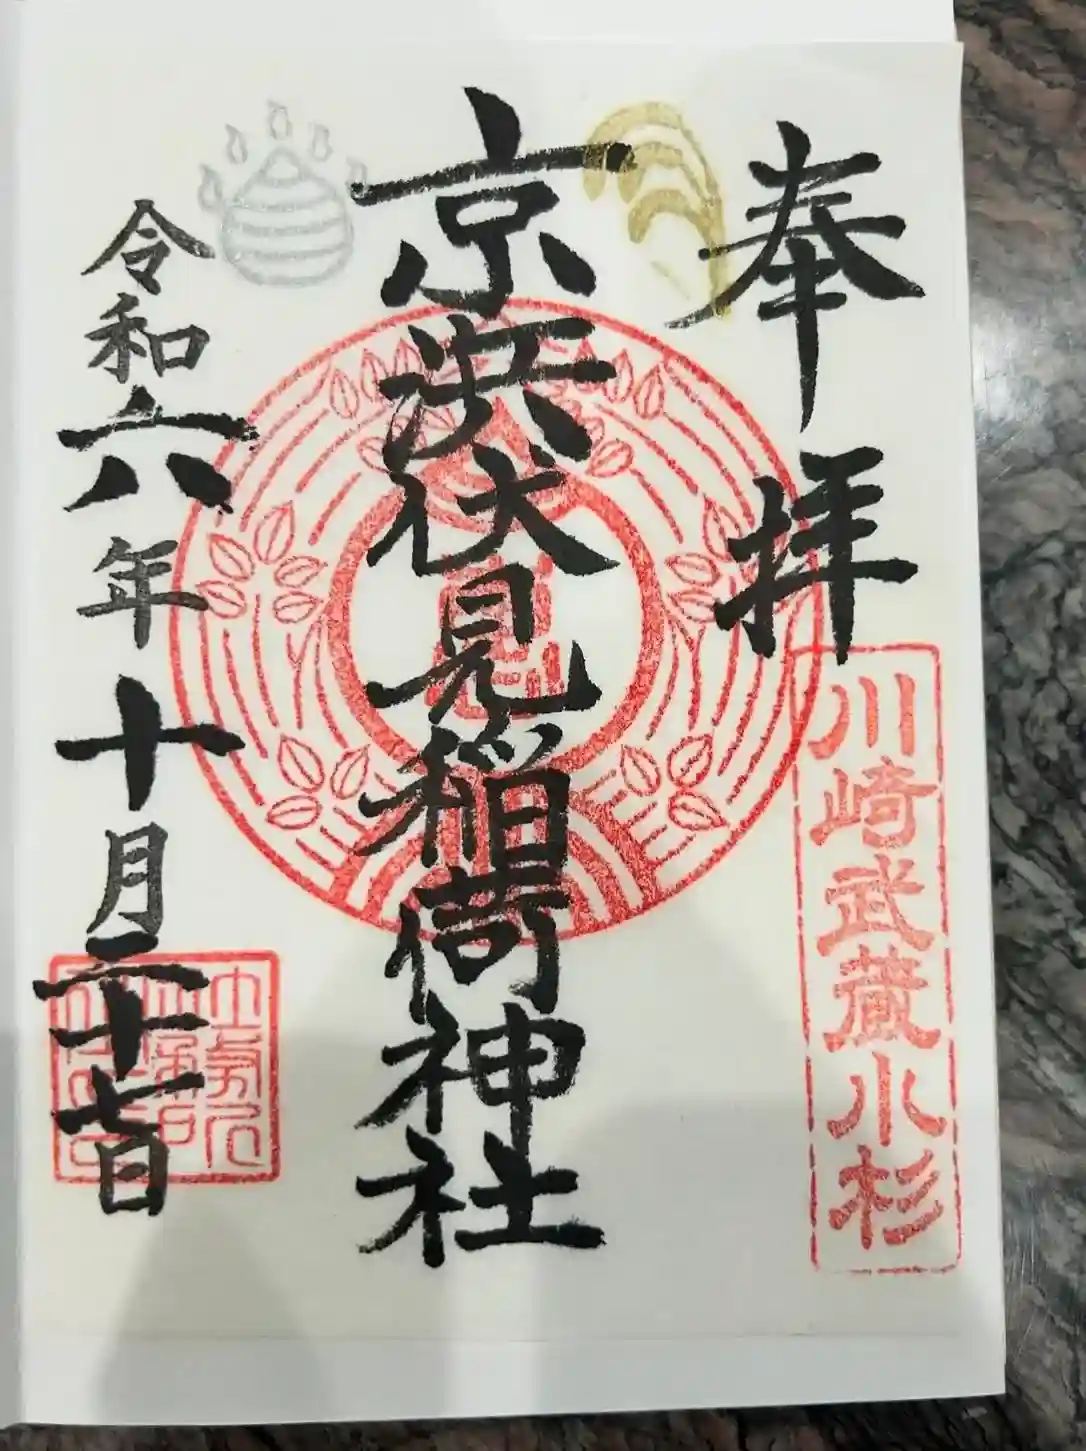 奉拝
川崎武蔵小杉
京濱伏見稲荷神社
令和六年十月二十七日